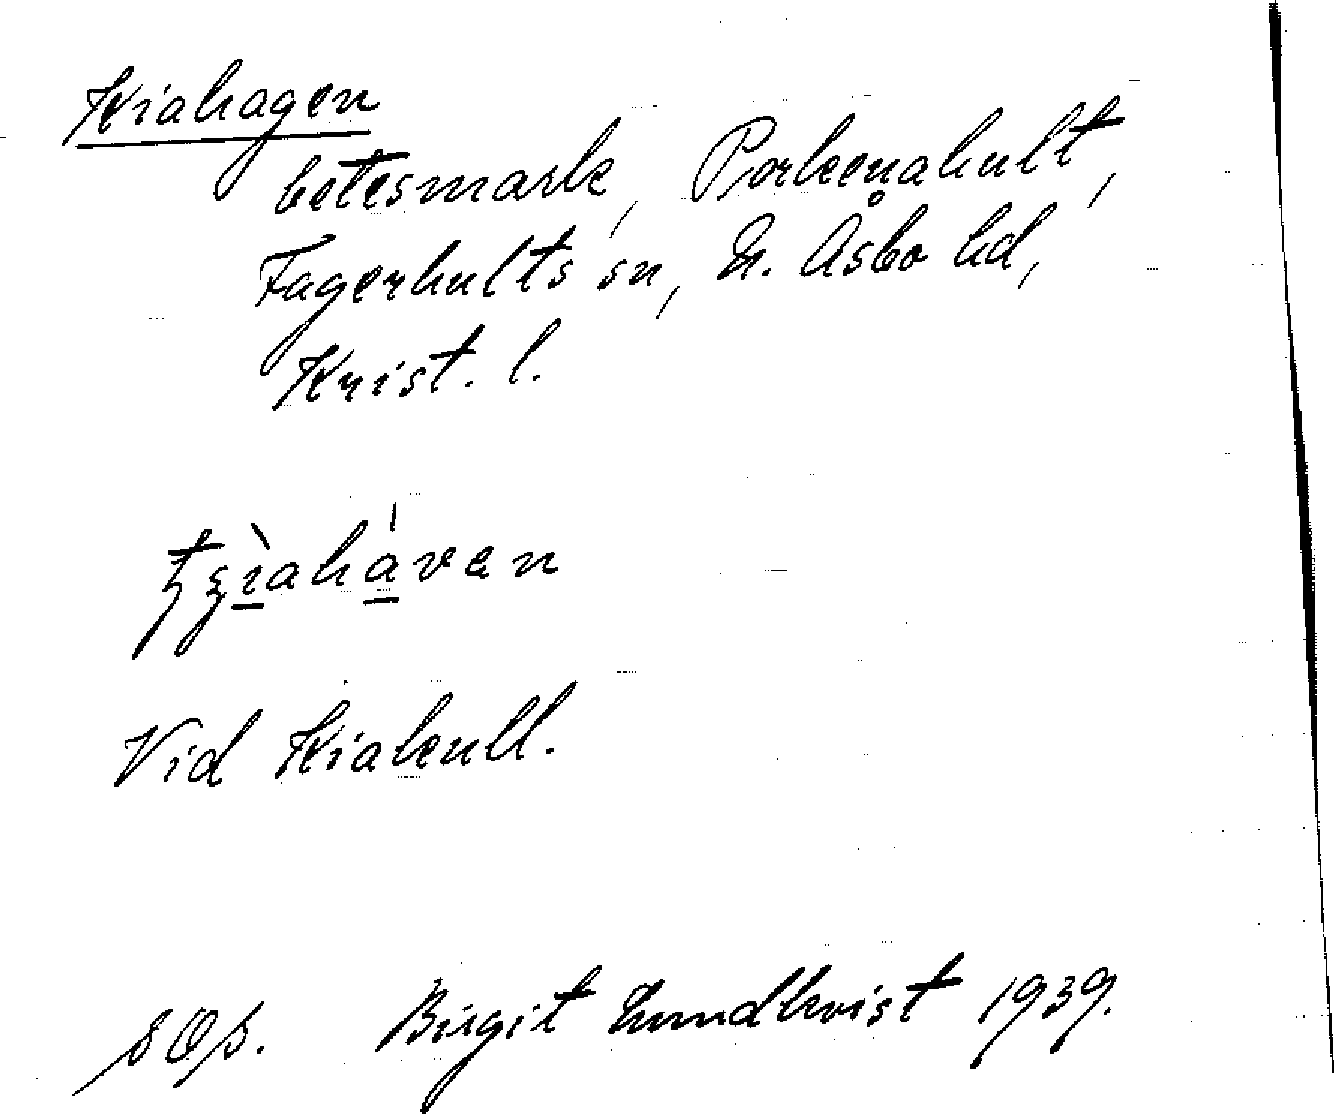 Kiahagen
betesmark, Porkenahult,
Fagerhults sn, N. Åsbo hd,
Krist. l.
Vid Kiakull.
SOS. Birgit Lundkvist 1939.